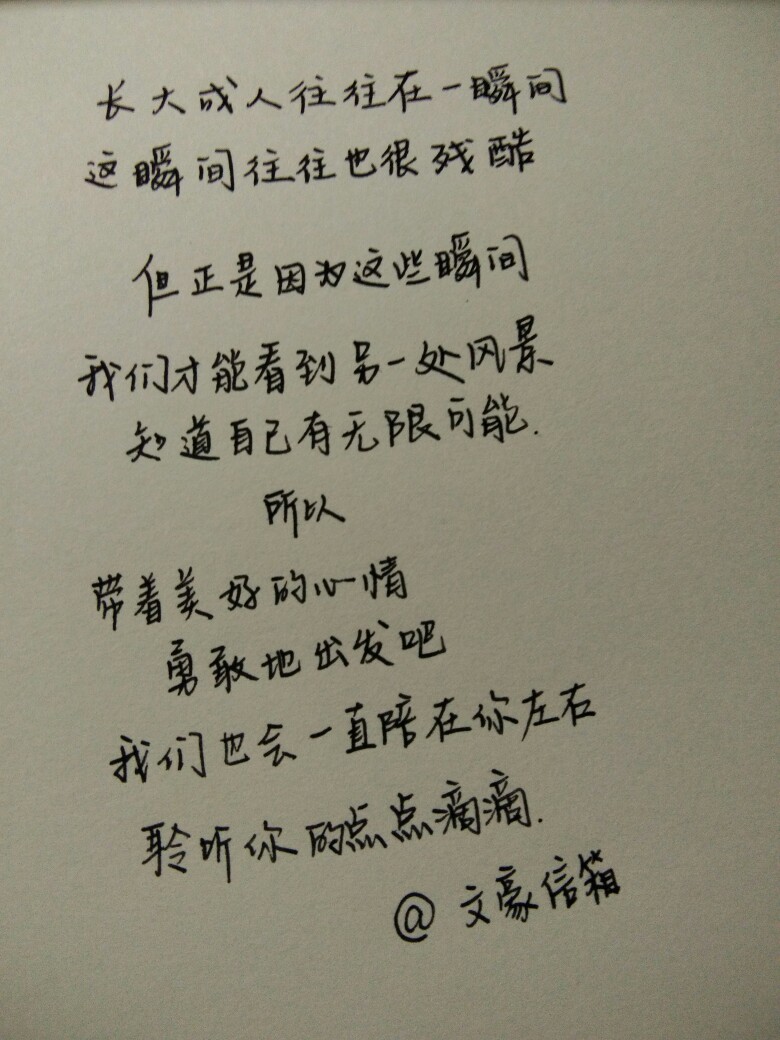 长大成人往往在一瞬间
这瞬间往往也很残酷
但正是因为这些瞬间
我们才能看到另一处风景
知道自己有无限可能.
所以
带着美好的心情
勇敢地出发吧
我们也会一直陪在你左右
聆听你的点点滴滴.
@文豪信箱